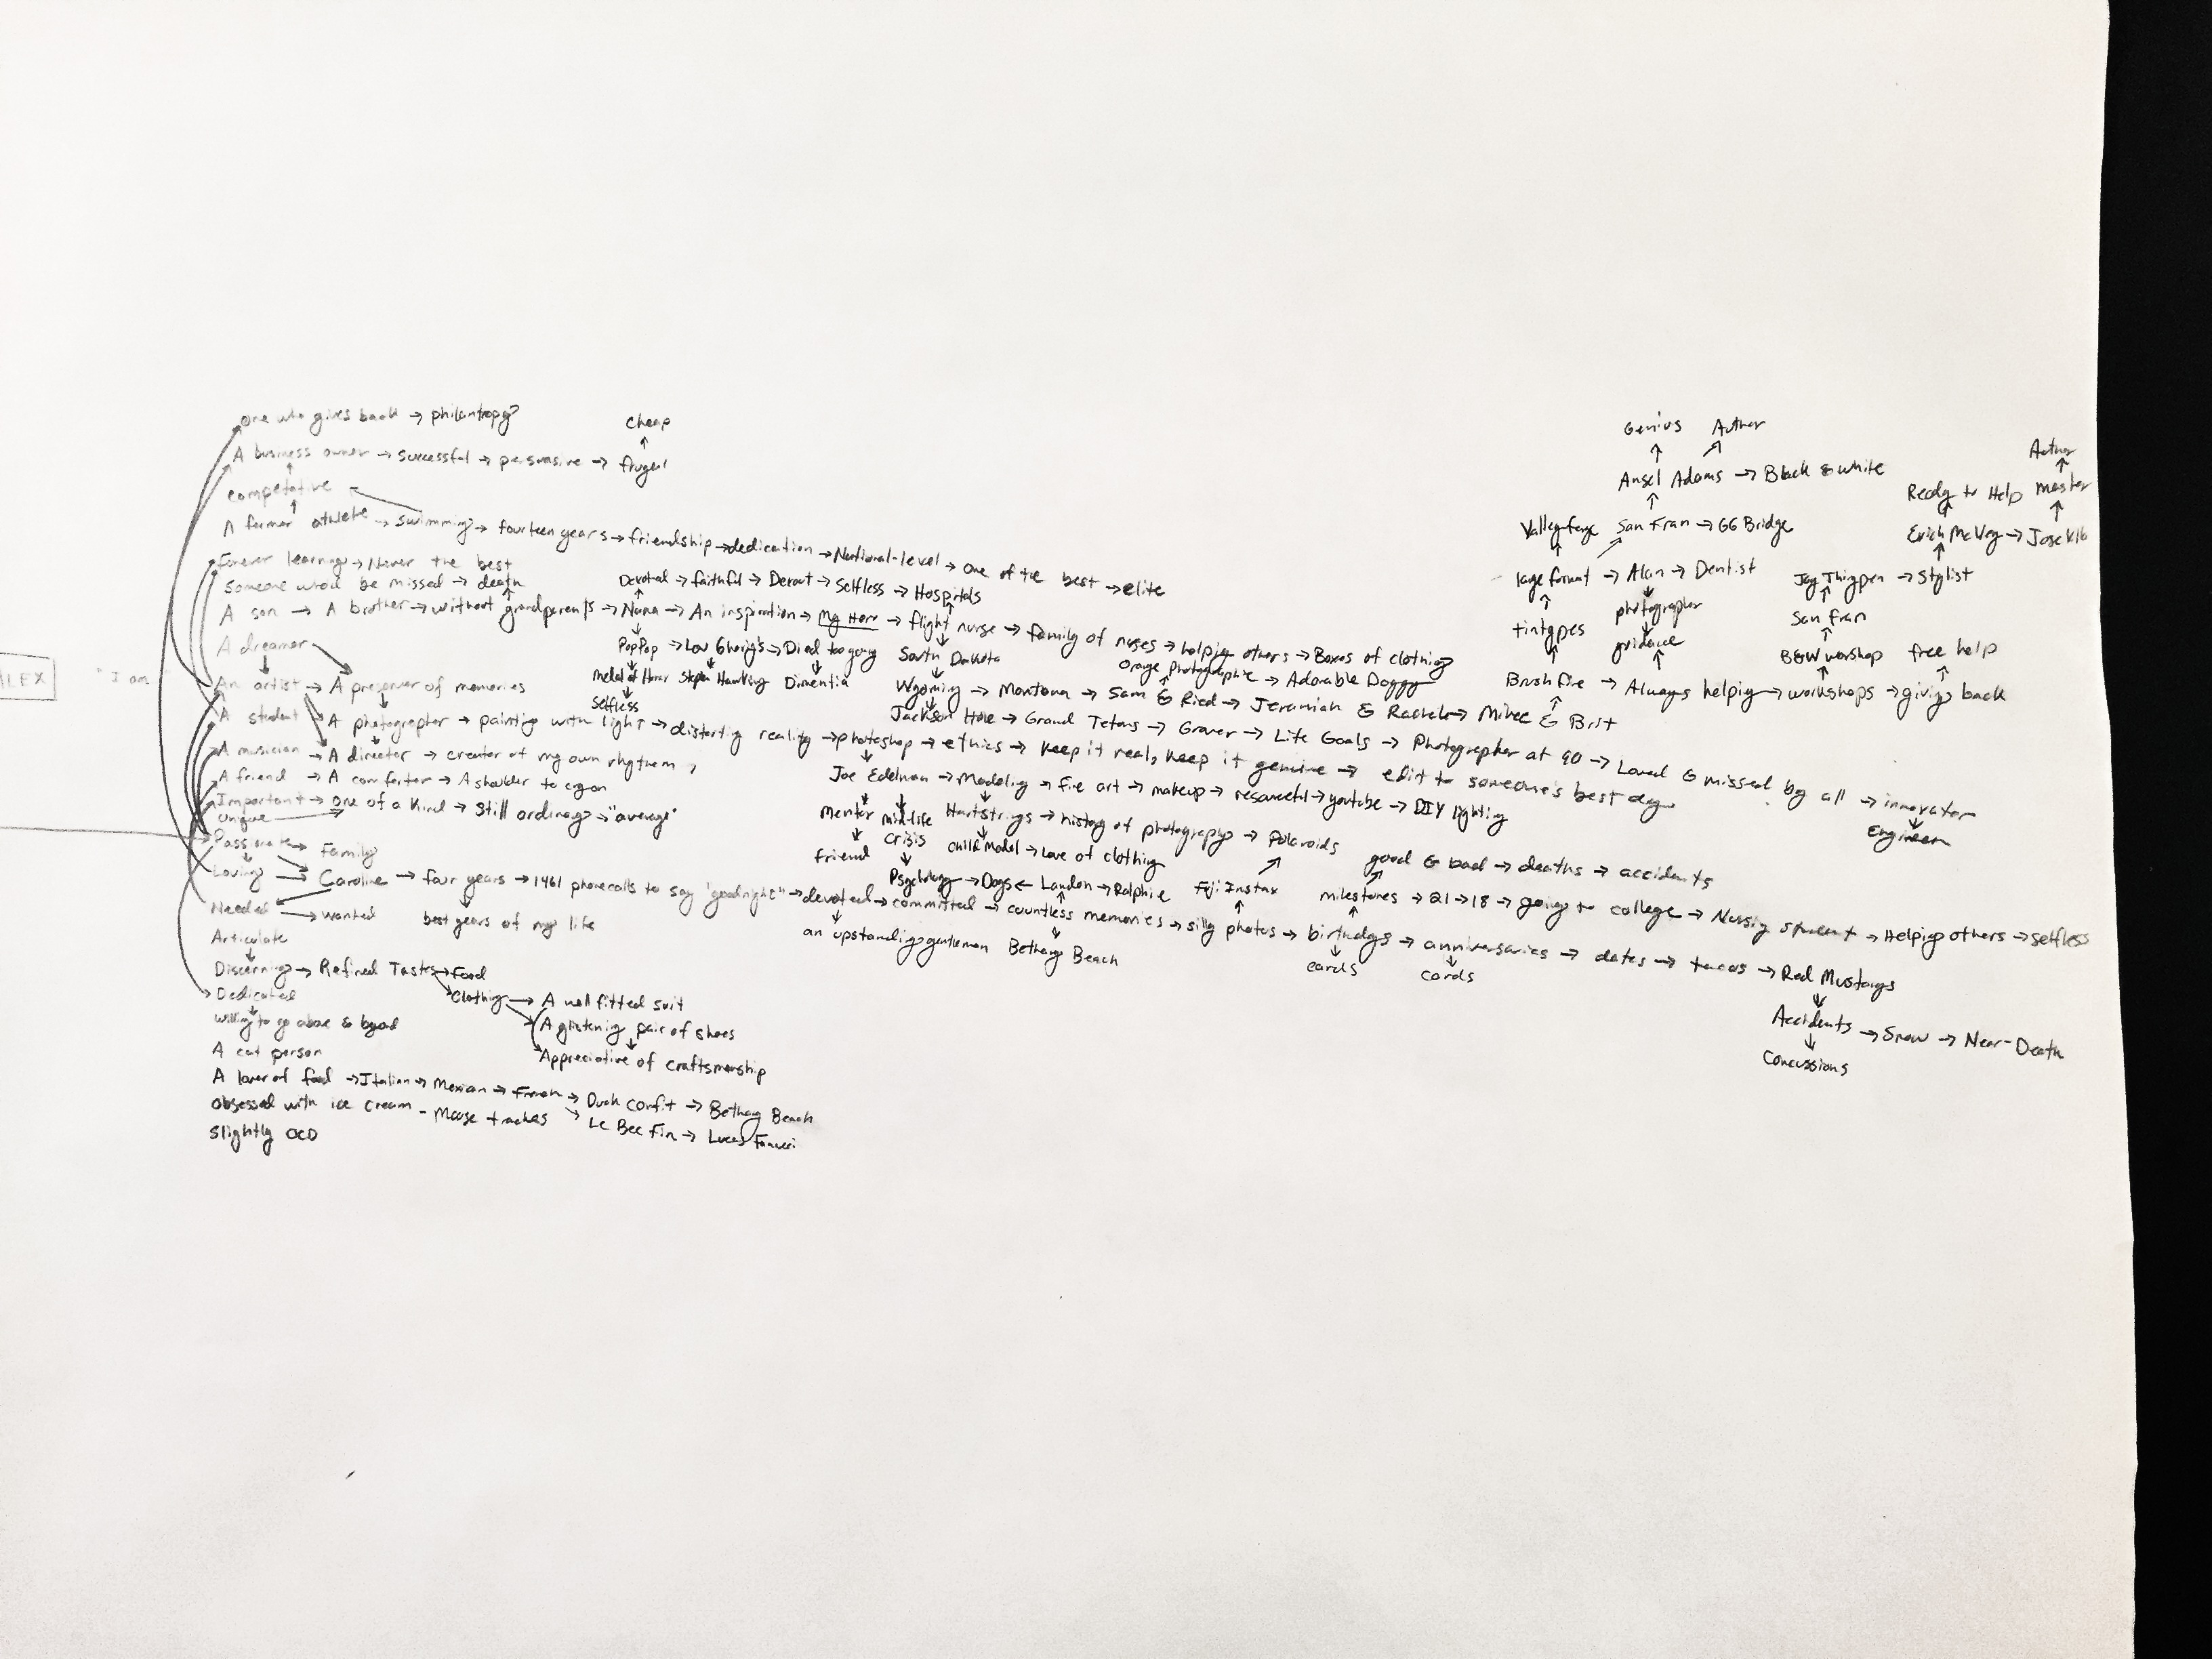 one who gives back → philantropy
Cheap
A business owner → successful → persuasive → frugal
competative
A former athlete → swimming → fourteen years → friendship → dedication → National-level → one of the best → elite
Forever learning → Never the best
Someone who'd be missed → death
Devoted → faithful → Devout → Selfless → Hospitals
A son → A brother → without grandparents → Nana → An inspiration → My Hero → flight nurse → family of nurses → helping others → Boxes of clothing
PopPop → Lou Gherig's → Died too young
South Dakota
Medal of Honor Stephen Hawking Dimentia
Selfless
Orange Photographie → Adorable Doggy
Wyoming → Montana → Sam & Ried → Jeremiah & Rachel → Mike & Brit
Jackson Hole → Grand Tetons → Grover → Life Goals → Photographer at 90 → Loved & missed by all → innovator
Engineer
A dreamer
ALEX
"I am
An artist → A preserver of memories
A student A photographer → painting with light → distorting reality → photoshop → ethics → keep it real, keep it genuine → edit to someone's best day
A musician → A director → creator of my own rhythem
A friend → A comforter → A shoulder to cry on
Joe Edelman → Modeling → Fine art → makeup → resourceful → youtube → DIY lighting
Important → one of a kind → Still ordinary → "average"
Unique
mentor mid-life crisis Hartstrings → history of photography → Polaroids
friend
child model → Love of clothing
Passionate → Family
Psychology → Dogs ← Landon → Ralphie
Fuji Instax
good & bad → deaths → accidents
milestones → 21 → 18 → going to college → Nursing student → Helping others → selfless
Loving → Caroline → four years → 1461 phonecalls to say "goodnight" → devoted → committed → countless memories → silly photos → birthdays → anniversaries → dates → tacos → Red Mustangs
Needed → wanted
best years of my life
an upstanding gentleman
Bethany Beach
cards
cards
Accidents → Snow → Near-Death
Concussions
Articulate
Discerning → Refined Tastes → Food
Clothing → A well fitted suit
Dedicated
A glistening pair of shoes
willing to go above & beyond
Appreciative of craftsmanship
A cat person
A lover of food → Italian → Mexican → French → Duck Confit → Bethany Beach
obsessed with ice cream - Moose traches
Le Bec Fin →
Slightly OCD
Genius Author
Ansel Adams → Black & white
Valley forge San Fran → GG Bridge
large format → Alan → Dentist
photographer
tintypes
guidance
Brush fire → Always helping → workshops → giving back
Author
Ready to Help Master
Erich McVey →
→ Stylist
San Fran
B&W worshop free help